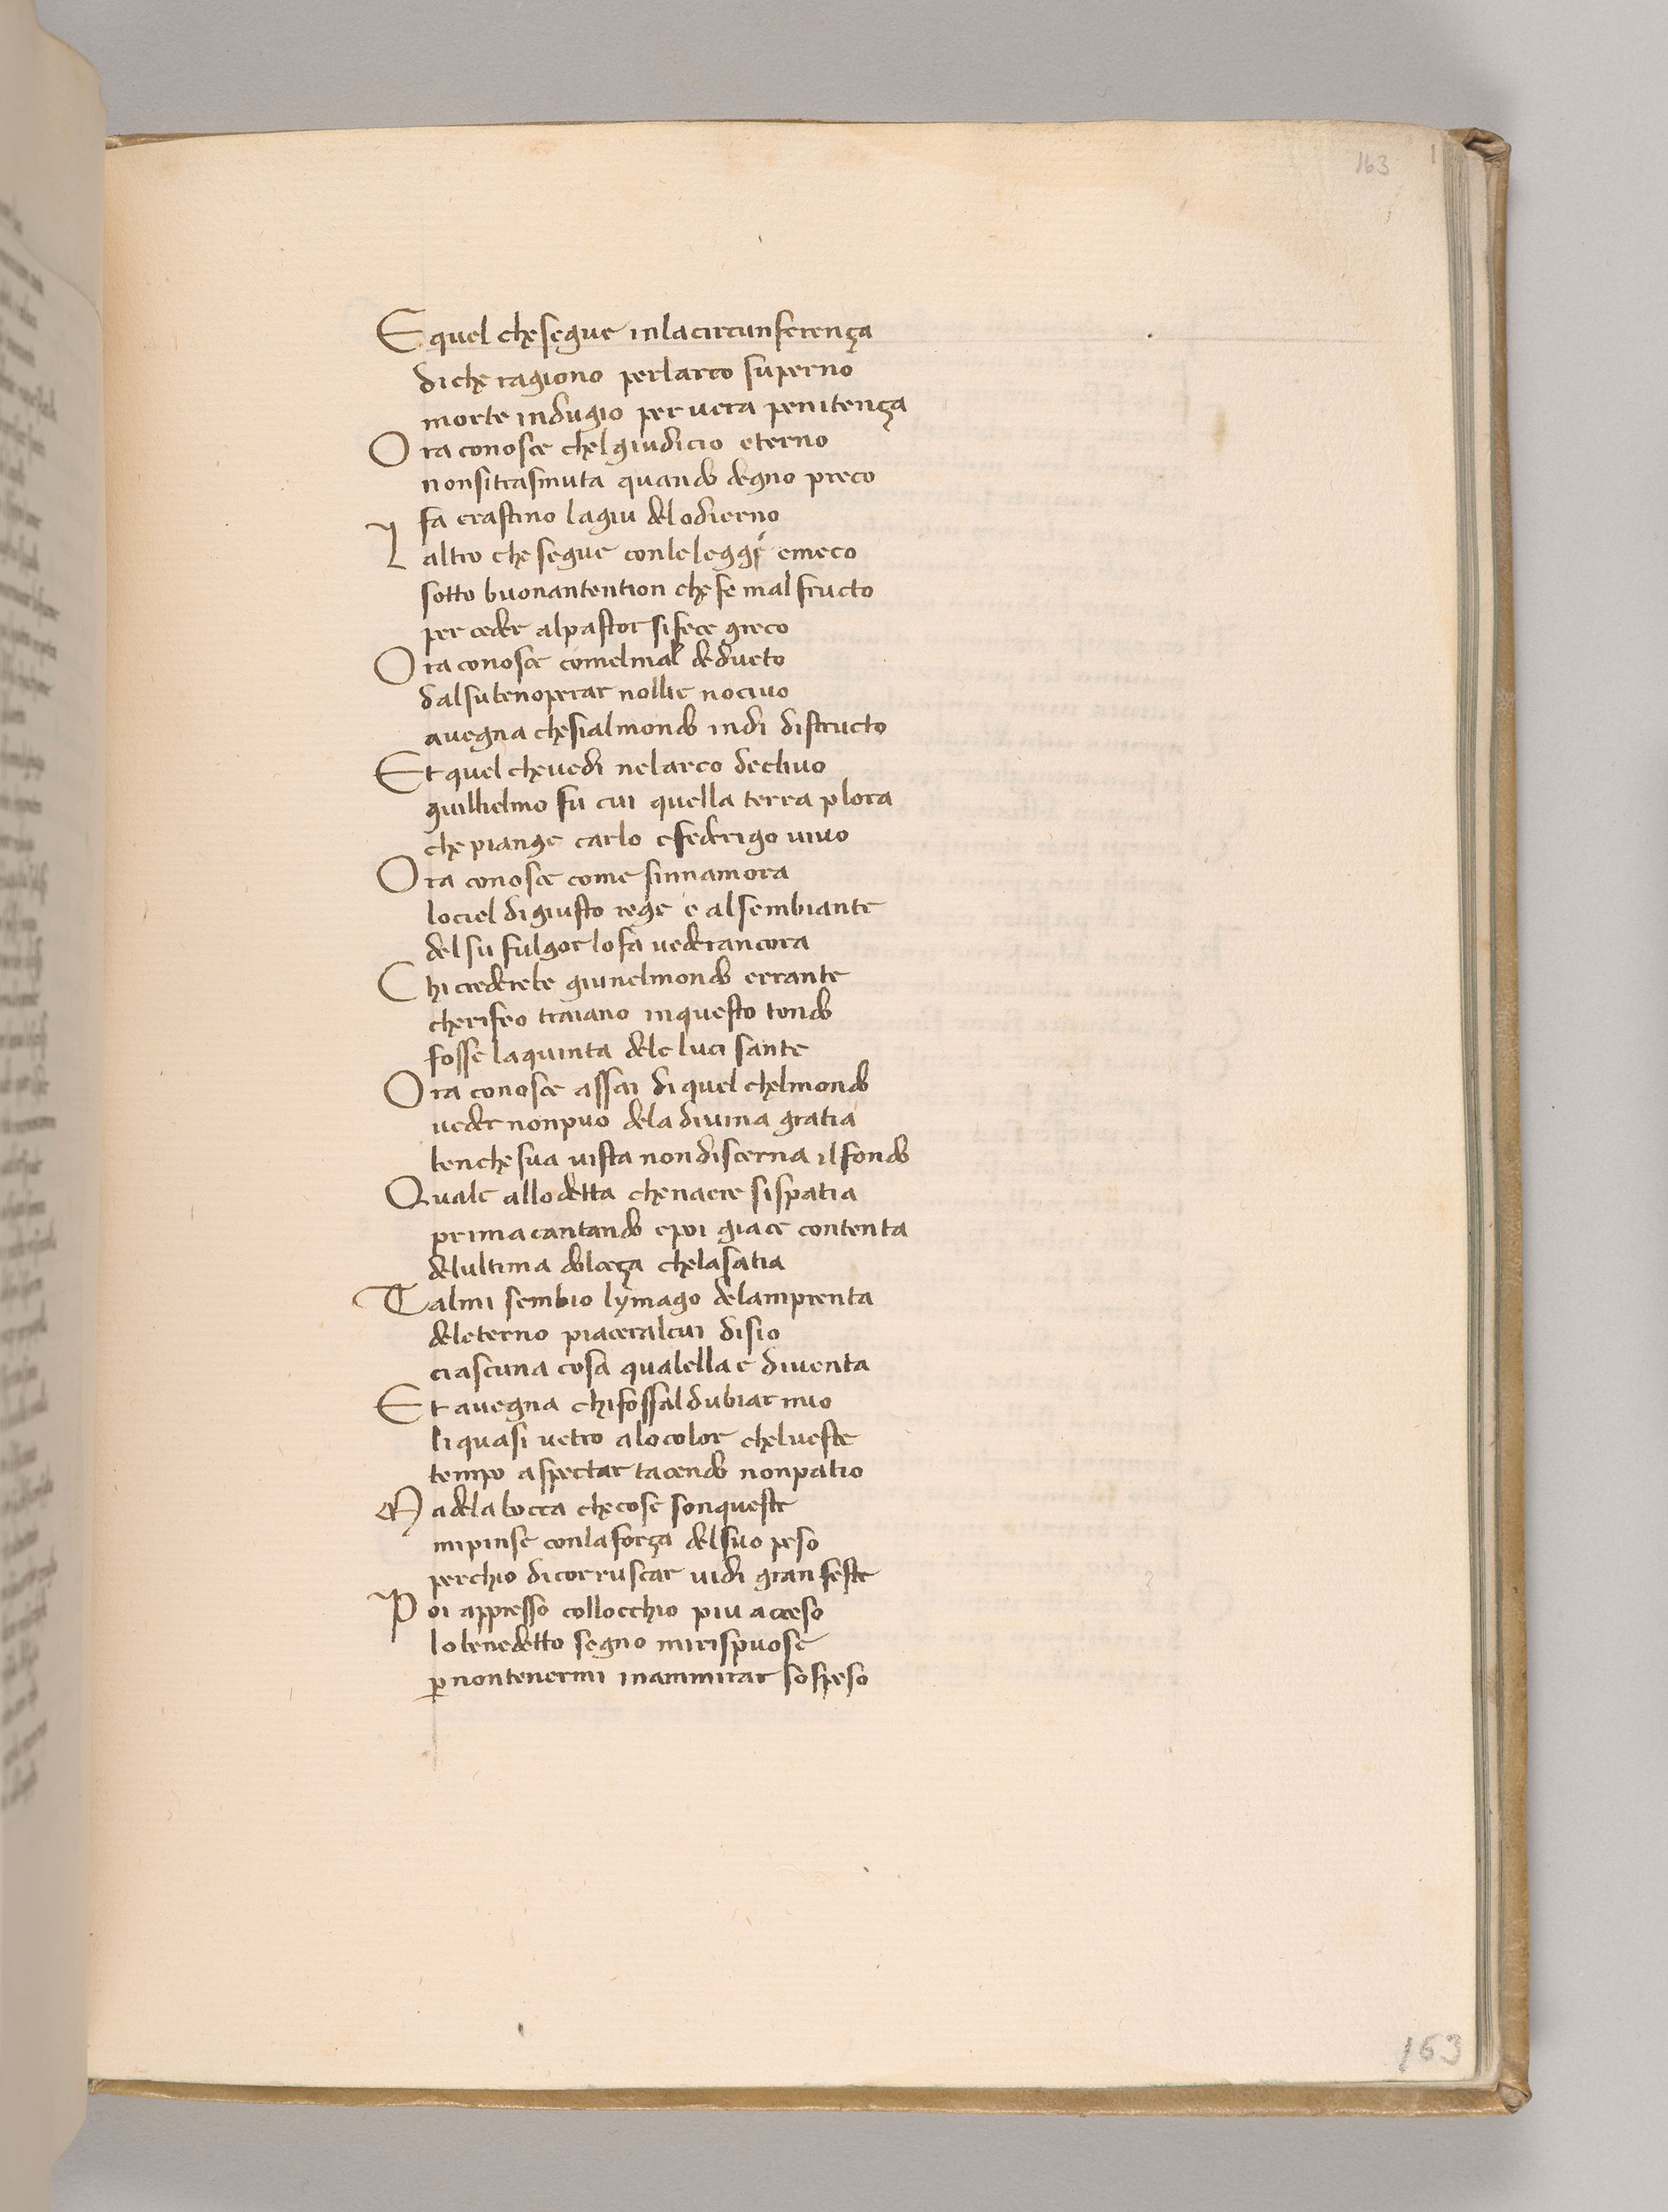 163
E quel che segue in la circunferença
di che ragiono per larco superno
morte indugio per uera penitença
O ra conosce chel giudicio eterno
non si trasmuta quando degno preco
fa crastino la giu del odierno
L altro che segue con le leggi e meco
sotto buona ntention che fe mal fructo
per ceder al pastor si fece greco
O ra conosce comel mal deducto
dal su ben operar nolli e nociuo
auegna che sial mondo indi distructo
E t quel che uedi nel arco decliuo
guillielmo fu cui quella terra plora
che piange carlo e federigo uiuo
O ra conosce come sinnamora
lo ciel di giusto rege e al sembiante
del su fulgor lo fa ueder ancora
C hi crederebe giu nel mondo errante
che rifeo traiano in questo tondo
fosse la quinta dele luci sante
O ra conosce assai di quel chel mondo
ueder non puo dela diuina gratia
ben che sua uista non discerna il fondo
Q uale allodetta che naere si spatia
prima cantando e poi giace contenta
delultima dolceça che la satia
T al mi sembio lymago delamprenta
deleterno piacer al cui disio
ciascuna cosa qualella e diuenta
E t auegna chi fossal dubiar mio
li quasi uetro a lo color chel ueste
tempo aspectar tacendo non patio
M a dela bocca che cose son queste
mi pinse con la força del suo peso
perchio di corruscar uidi gran feste
P oi appresso collocchio piu acceso
lo benedetto segno mi rispuose
p non tenermi in ammirar sospeso
163